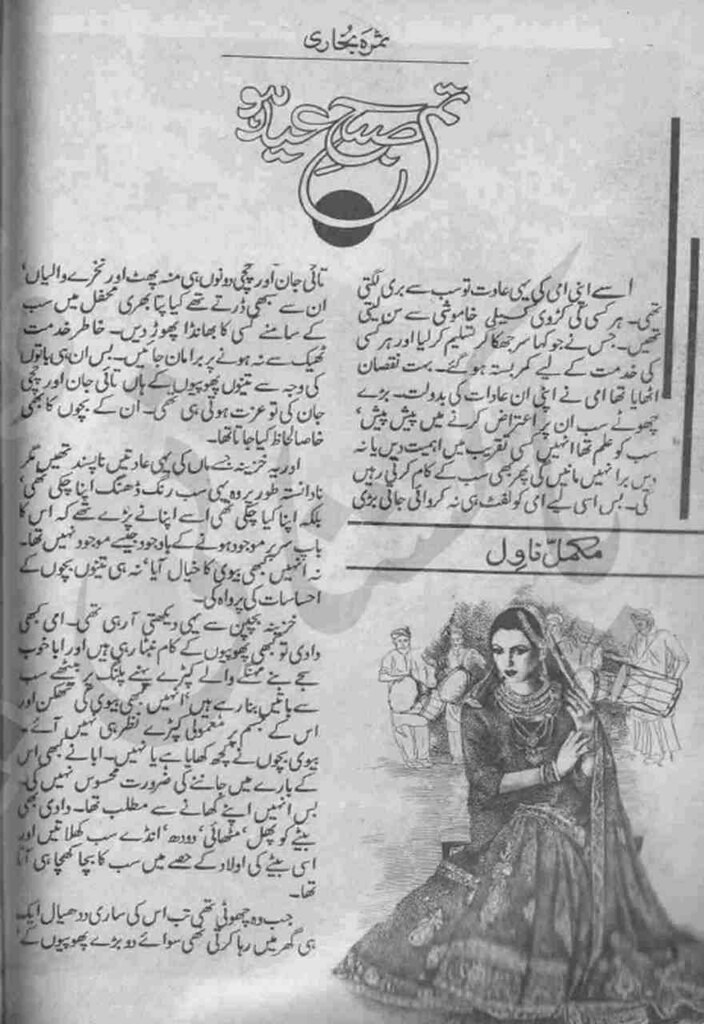 ثمرہ بخاری
تم صباحِ عید ہو
اسے اپنی امی کی یہی عادت تو سب سے بری لگتی
تھی۔ ہر کسی کی کڑوی کسیلی خاموشی سے سن لیتی
تھیں۔ جس نے جو کہا سر جھکا کر تسلیم کر لیا اور ہر کسی
کی خدمت کے لیے کمربستہ ہو گئے۔ بہت نقصان
اٹھایا تھا امی نے اپنی ان عادات کی بدولت۔ بڑے
چھوٹے سب ان پر اعتراض کرنے میں پیش پیش‘
سب کو علم تھا انہیں کسی تقریب میں اہمیت دیں یا نہ
دیں برا نہیں مانیں گی پھر بھی سب کے کام کرتی رہیں
گی۔ بس اسی لیے امی کو لفٹ ہی نہ کروائی جاتی بڑی
مکمل ناول
تائی جان اور چچی دونوں ہی منہ پھٹ اور نخرے والیاں‘
ان سے سبھی ڈرتے تھے کیا پتا بھری محفل میں سب
کے سامنے کسی کا بھانڈا پھوڑ دیں۔ خاطر خدمت
ٹھیک سے نہ ہونے پر برا مان جائیں۔ بس ان ہی باتوں
کی وجہ سے تینوں پھوپیوں کے ہاں تائی جان اور چچی
جان کی تو عزت ہوتی ہی تھی۔ ان کے بچوں کا بھی
خاصا لحاظ کیا جاتا تھا۔
اور یہ خزینہ جسے ماں کی یہی عادتیں ناپسند تھیں مگر
نادانستہ طور پر وہ یہی سب رنگ ڈھنگ اپنا چکی تھی‘
بلکہ اپنا کیا چکی تھی اسے اپنانے پڑے تھے کہ اس کا
باپ سر پر موجود ہونے کے باوجود جیسے موجود نہیں تھا۔
نہ انہیں کبھی بیوی کا خیال آیا‘ نہ ہی تینوں بچوں کے
احساسات کی پرواہ کی۔
خزینہ بچپن سے یہی دیکھتی آ رہی تھی۔ امی کبھی
دادی تو کبھی پھوپیوں کے کام نبٹا رہی ہیں اور ابا خوب
سجے بنے مہنگے والے کپڑے پہنے پلنگ پر بیٹھے سب
سے باتیں بنا رہے ہیں‘ انہیں کبھی بیوی کی تھکن اور
اس کے جسم پر معمولی کپڑے نظر ہی نہیں آئے۔
بیوی بچوں نے کچھ کھایا ہے یا نہیں۔ ابا نے کبھی اس
کے بارے میں جاننے کی ضرورت محسوس نہیں کی۔
بس انہیں اپنے کھانے سے مطلب تھا۔ دادی بھی
بیٹے کو پھل‘ مٹھائی‘ دودھ‘ انڈے سب کھلاتیں اور
اسی بیٹے کی اولاد کے حصے میں سب کا بچا کھچا ہی آتا
تھا۔
جب وہ چھوٹی تھی تب اس کی ساری ددھیال ایک
ہی گھر میں رہا کرتی تھی سوائے دو بڑے پھوپیوں کے‘